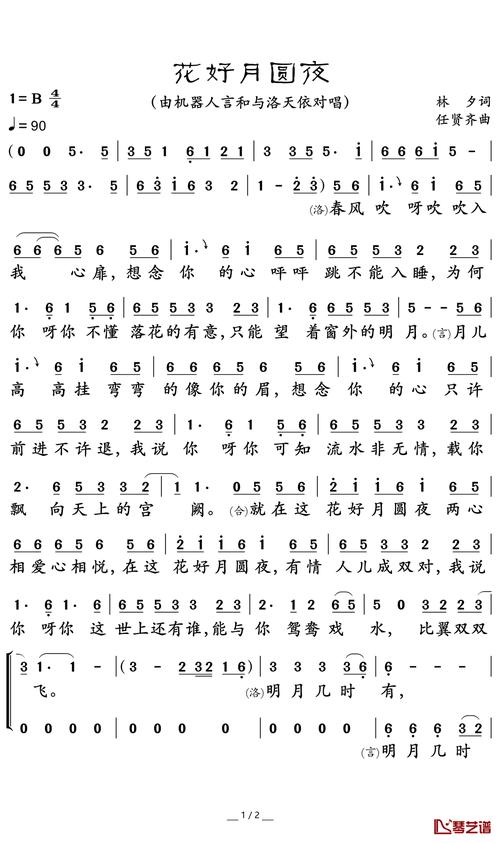 花好月圆夜
1=B 4/4 （由机器人言和与洛天依对唱） 林 夕词
♩=90 任贤齐曲
( 0 0 5· 5 | 3 5 1 6 1 2 1 | 3 3 5 5· i | 6 i 6 5 5 -
6 5 5 3 3· 5 | 6 3 i 6 3 2 | 1 - 2 3 ) 5 6 | i· 6 i 6 5
(洛)春风 吹 呀吹 吹入
6 6 6 5 6 5 6 | i· 6 i 6 5 | 6 5 5 3 2 2 3
我 心扉,想念 你 的心 呼呼 跳不能入睡,为何
1· 6 1 5 6 | 6 6 5 3 3 2 3 | 1· 6 6 5 3 5 | 5 - - 5 6
你 呀你 不懂 落花的有意,只能 望 着窗外的明 月。(言)月儿
i· 6 i 6 5 | 6 6 6 5 6 5 6 | i· 6 i 6 5
高 高挂 弯弯 的像你的眉,想念 你 的心 只许
6 5 5 3 2 2 3 | 1· 6 1 5 6 | 6 5 5 3 2 5 6
前进不许退,我说 你 呀你 可知 流水非无情,载你
2· 6 5 3 3 2 | 1 1· 0 5 5 6 | 2 i 6 i 5 6
飘 向天上的宫 阙。(合)就在这 花好月圆夜 两心
6 6 6 5 6 5 6 | 2 i 6 i 5 6 | 6 5 3 3 2 2 3
相爱心相悦,在这 花好月圆夜,有情 人儿成双对,我说
1· 6 1 5 6 | 6 5 5 3 3 2 3 | 2· 1 2 i 6 5 | 5 - 2 2 3
你 呀你 这 世上还有谁,能与 你 鸳鸯 戏 水, 比翼双双
3 1· 1 - | (3 - 2 3 2 1 6) | 3 3 3 3 6 | 6 - - -
飞。 (洛)明月几时 有,
0 0 0 0 | 0 0 0 0 | 0 0 0 0 | 6 6 6 3 2
(言)明月几时
1 / 2
琴艺谱